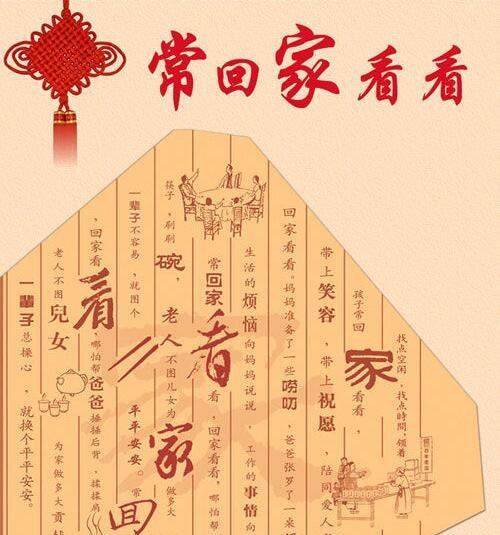 常回家看看
找点空闲，找点時間，领着
孩子常回家看看，
带上笑容，带上祝愿，陪同爱人
回家看看。妈妈准备了一些唠叨，爸爸张罗了一来
生活的烦恼向妈妈说说，工作的事情向
常回家看看，回家看看，哪怕
筷子，刷刷碗，老人不图儿女为家做多大
一辈子不容易，就图个平平安安。常
，回家看看，哪怕帮爸爸捶捶后背，揉揉肩
老人不图兒女为家做多大贡
一輩子总操心，就换个平平安安。
回家